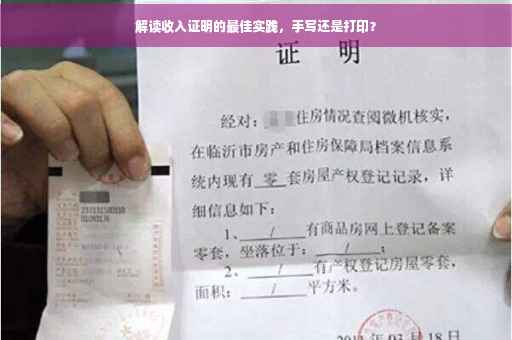 解读收入证明的最佳实践，手写还是打印？
证 明
经对：住房情况查阅微机核实，
在临沂市房产和住房保障局档案信息系
统内现有 零 套房屋产权登记记录，详
细信息如下：
1、 / 有商品房网上登记备案
零套，坐落位于： / ；
2、 / 有产权登记房屋零套，
面积： / 平方米。
03 月 18 日